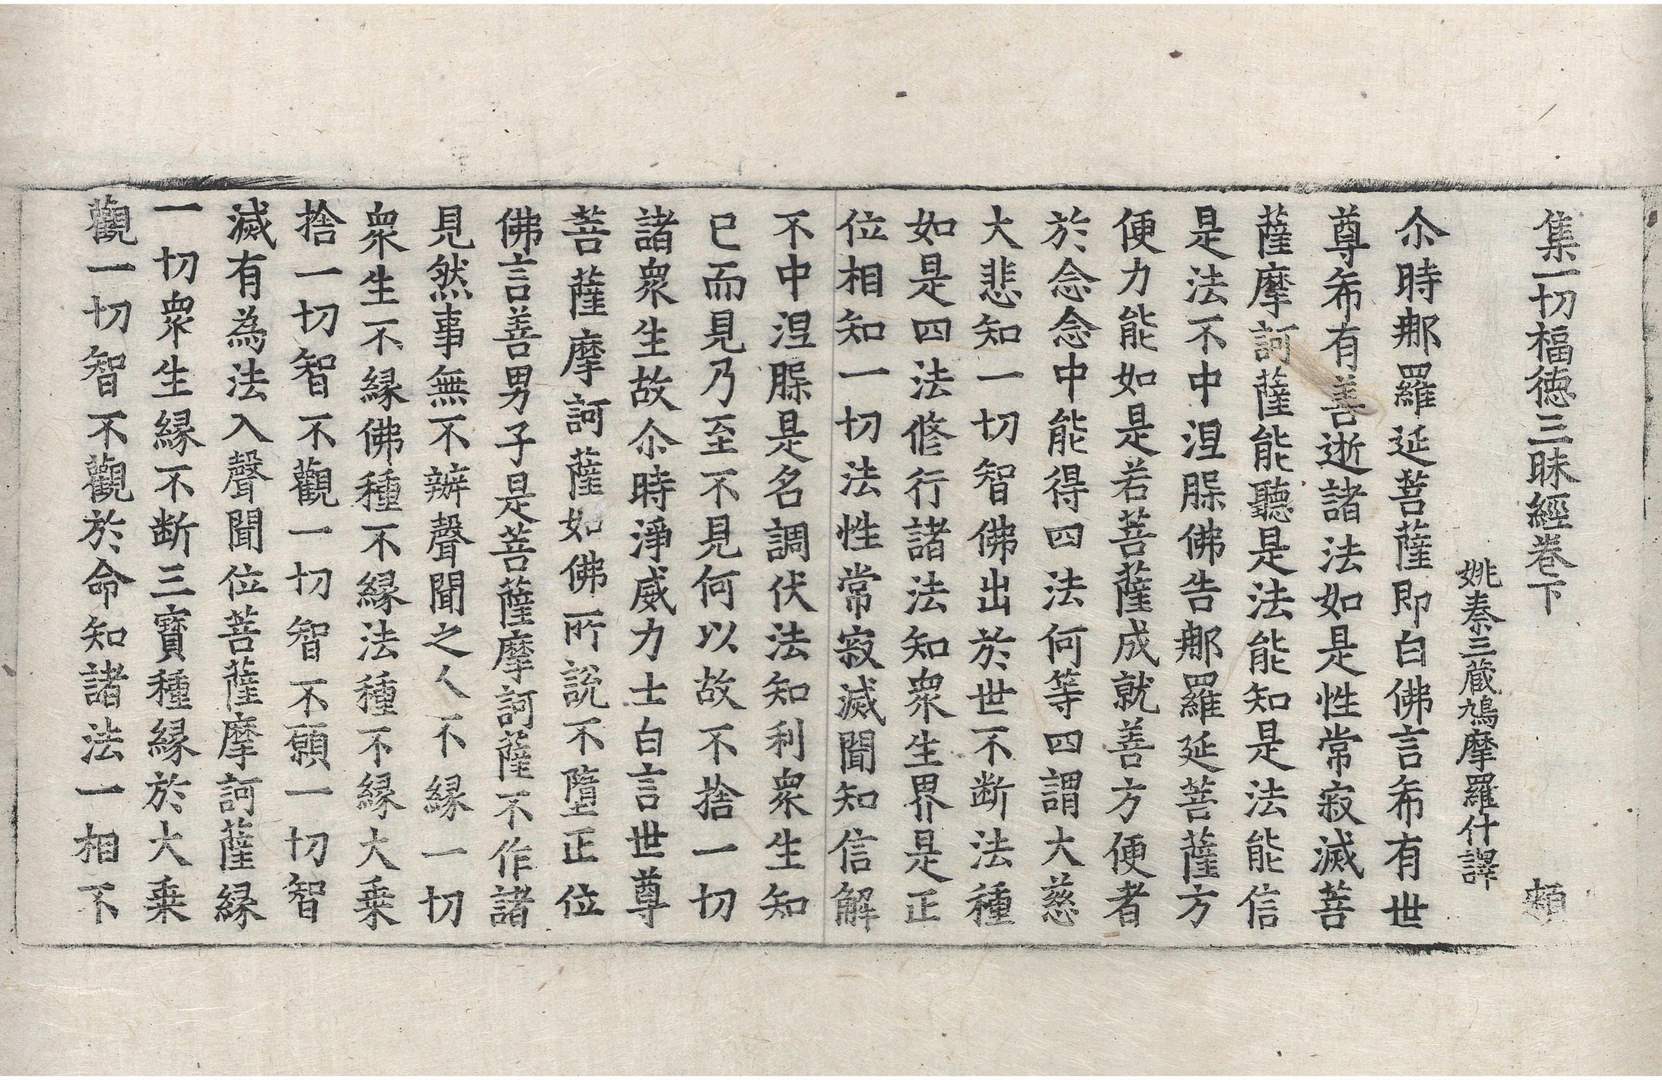 集一切福德三昧經卷下 頼
姚秦三蔵鳩摩羅什譯
尒時郍羅延菩薩即白佛言希有世
尊希有善逝諸法如是性常寂滅菩
薩摩訶薩能聽是法能知是法能信
是法不中涅腬佛告郍羅延菩薩方
便力能如是若菩薩成就善方便者
於念念中能得四法何等四謂大慈
大悲知一切智佛出於世不断法種
如是四法俢行諸法知衆生界是正
位相知一切法性常寂滅聞知信解
不中涅腬是名調伏法知利衆生知
已而見乃至不見何以故不捨一切
諸衆生故尒時淨威力士白言世尊
菩薩摩訶薩如佛所說不墮正位
佛言善男子是菩薩摩訶薩不作諸
見然事無不辦聲聞之人不縁一切
衆生不縁佛種不縁法種不縁大乗
捨一切智不觀一切智不願一切智
滅有為法入聲聞位菩薩摩訶薩縁
一切衆生縁不断三寶種縁於大乗
觀一切智不觀於命知諸法一相不